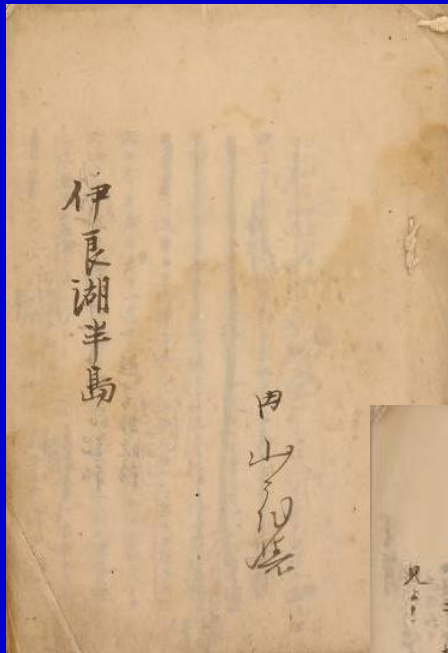 伊良湖半島
田山花袋